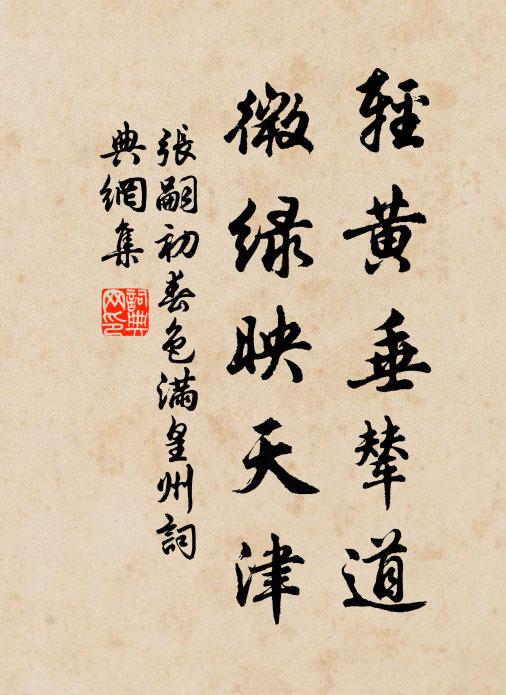 輕黃垂輦道
微绿映天津
張嗣初春色滿皇州詞
典網集
詞典
网印